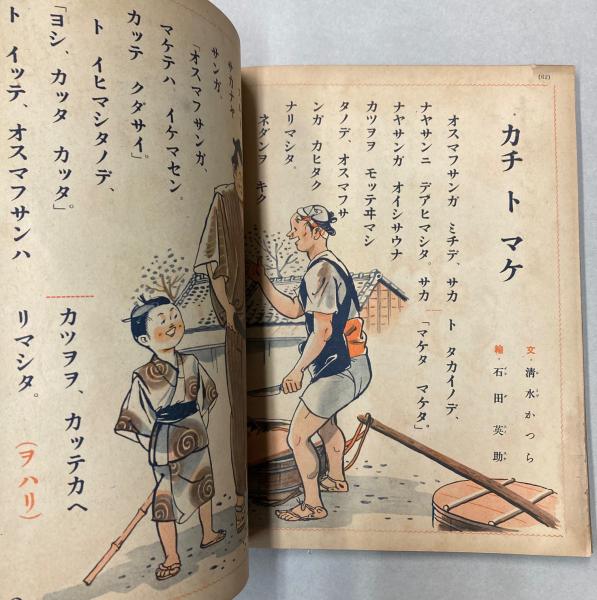 (62)
カチ ト マケ
文・清水かつら
繪・石田英助
オスマフサンガ ミチデ、サカ
ナヤサンニ デアヒマシタ。サカ
ナヤサンガ オイシサウナ
カツヲヲ モッテヰマシ
タノデ、オスマフサ
ンガ カヒタク
ナリマシタ。
ネダンヲ キク
ト タカイノデ、
「マケタ マケタ」。
サカナヤ
サンガ、
「オスマフサンガ、
マケテハ、イケマセン。
カッテ クダサイ」。
ト イヒマシタノデ、
「ヨシ、カッタ カッタ」。
ト イッテ、オスマフサンハ
カツヲヲ、カッテカヘ
リマシタ。
(ヲハリ)